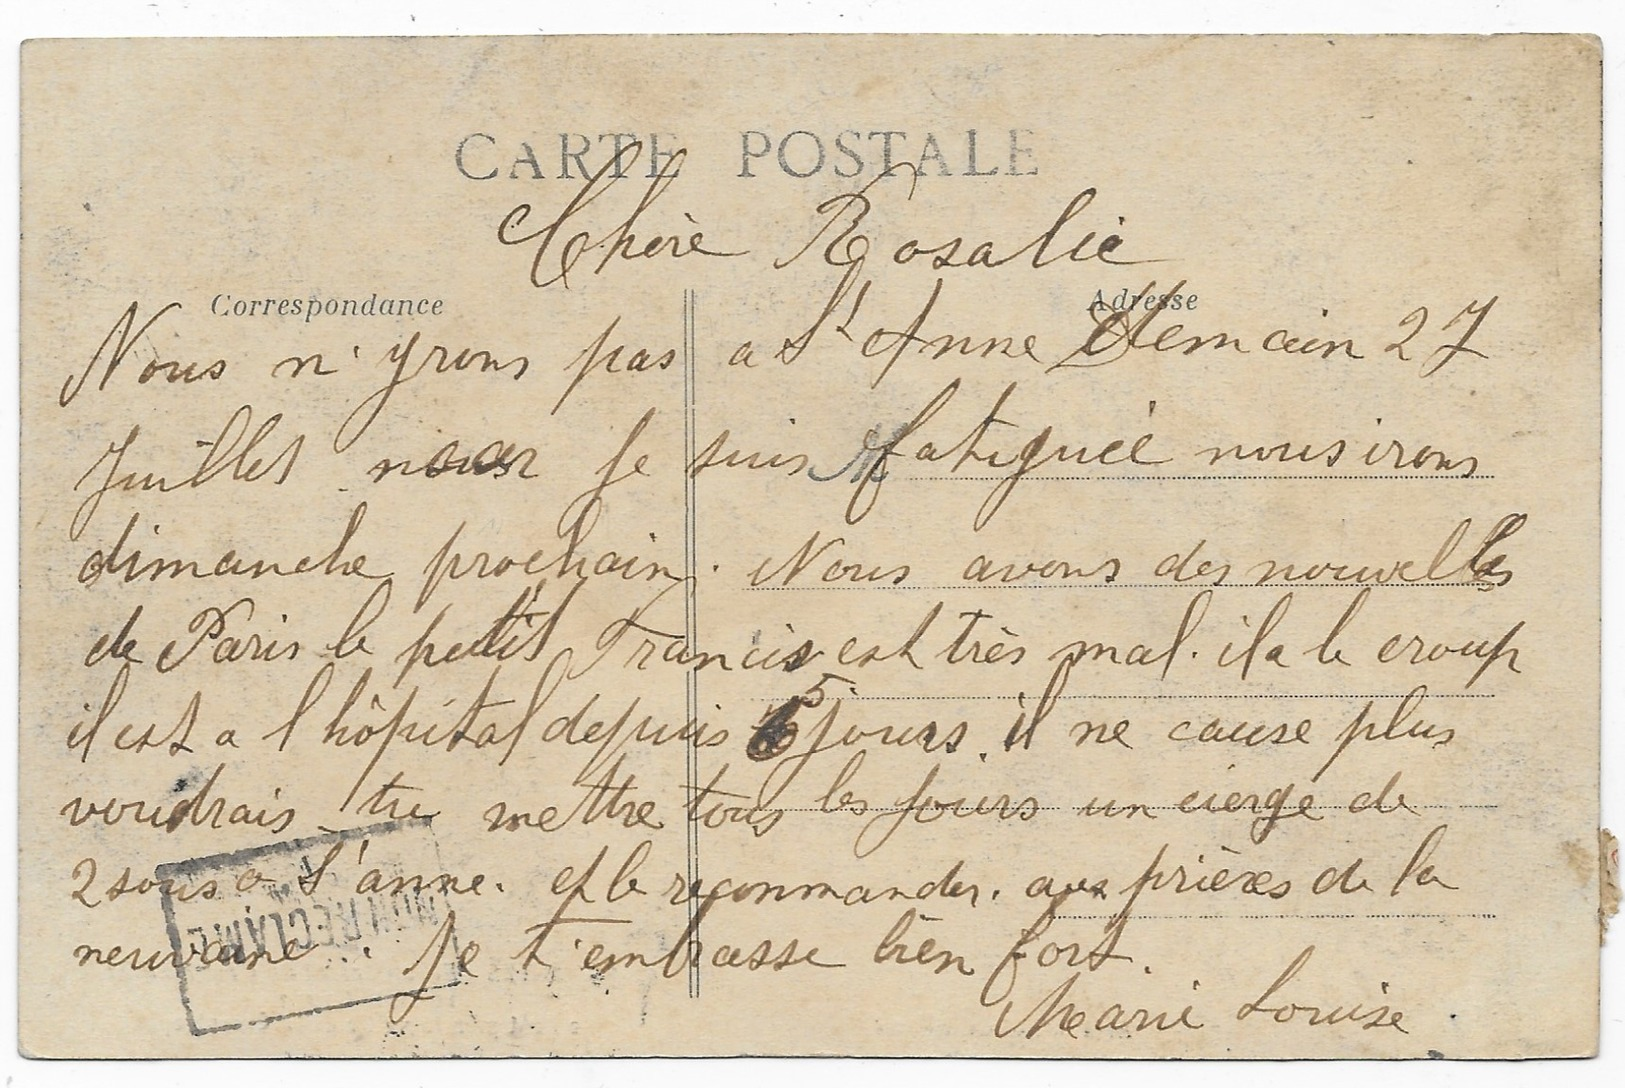 CARTE POSTALE
Chère Rosalie
Correspondance
Adresse
Nous n'yrons pas a St Anne Demain 27
Juillet je suis fatiguée nous irons
dimanche prochain. Nous avons des nouvelles
de Paris le petit Francis est très mal. il a le croup
il est a l hôpital depuis 5 jours. il ne cause plus
voudrais tu mettre tous les jours un cierge de
2 sous a St anne. et le reconmander. aux prières de la
neuvaine. Je t'embrasse bien fort.
Marie Louise
NON RECLAME